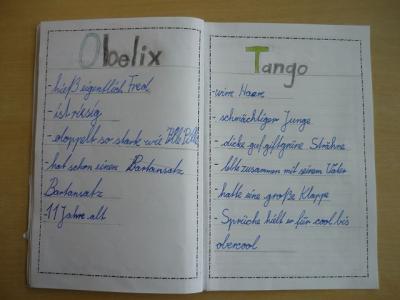 Obelix
-hieß eigentlich Fred
-ist riesig
-doppelt so stark wie Pelle
-hat schon einen Bartansatz
Bartansatz
-11 Jahre alt
Tango
-wirre Haare
-schmächtiger Junge
-dicke giftgrüne Strähne
-lebte zusammen mit seinem Vater
-hatte eine große Klappe
-Sprüche hielt er für cool bis
obercool